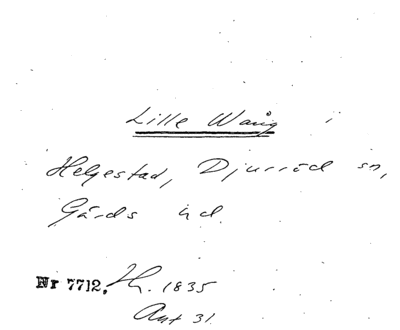 Lille Wång i
Helgestad, Djurröd sn,
Gärds hd.
Nr 7712. Th. 1835
Ant 31.